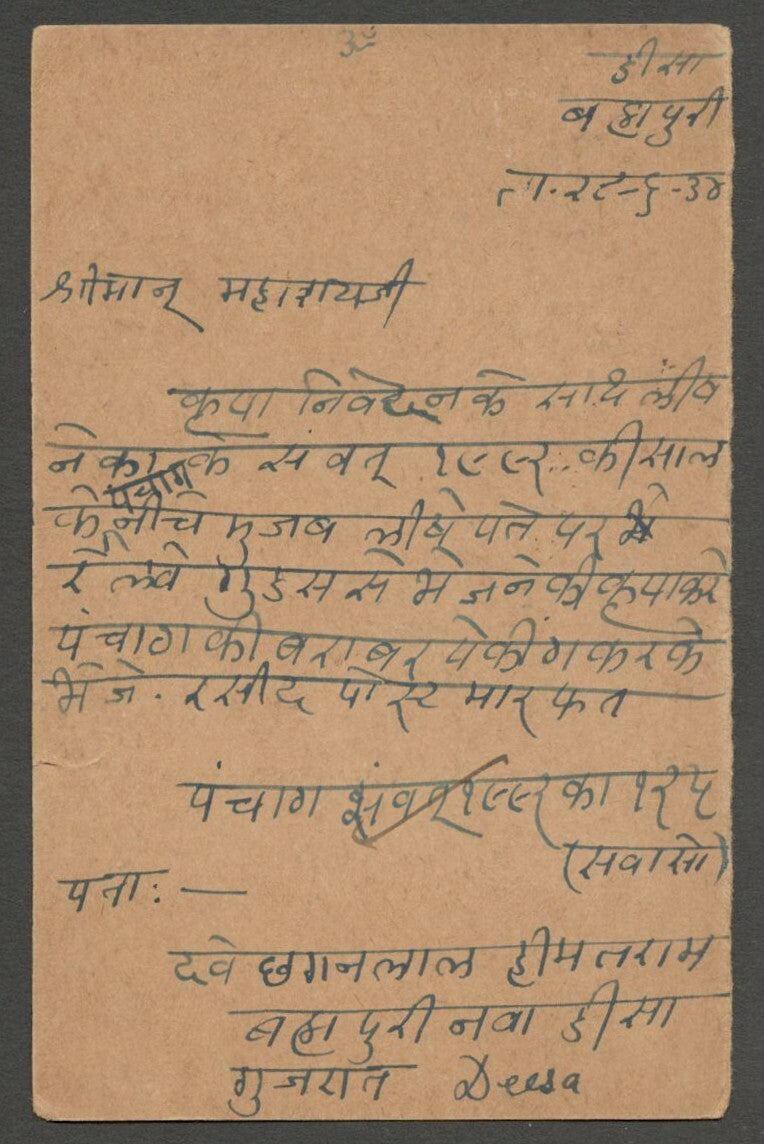 ॐ
डीसा
ब्रह्मपुरी
ता. २८-६-३४
श्रीमान् महाशयजी
कृपा निवेदन के साथ लीष
ने का के संवत् १९९२ की साल
के पंचाग नीचे मुजब लीषे पते पर
रेलवे गुडस से भेजने की कृपा करे
पंचाग को बराबर पेकींग करके
भेजे. रसीद पोस्ट मारफत
पंचाग संवत् १९९२ का १२५
(सवासो)
पता: —
दवे छगनलाल हीमतराम
ब्रह्मपुरी नवा डीसा
गुजरात Deesa